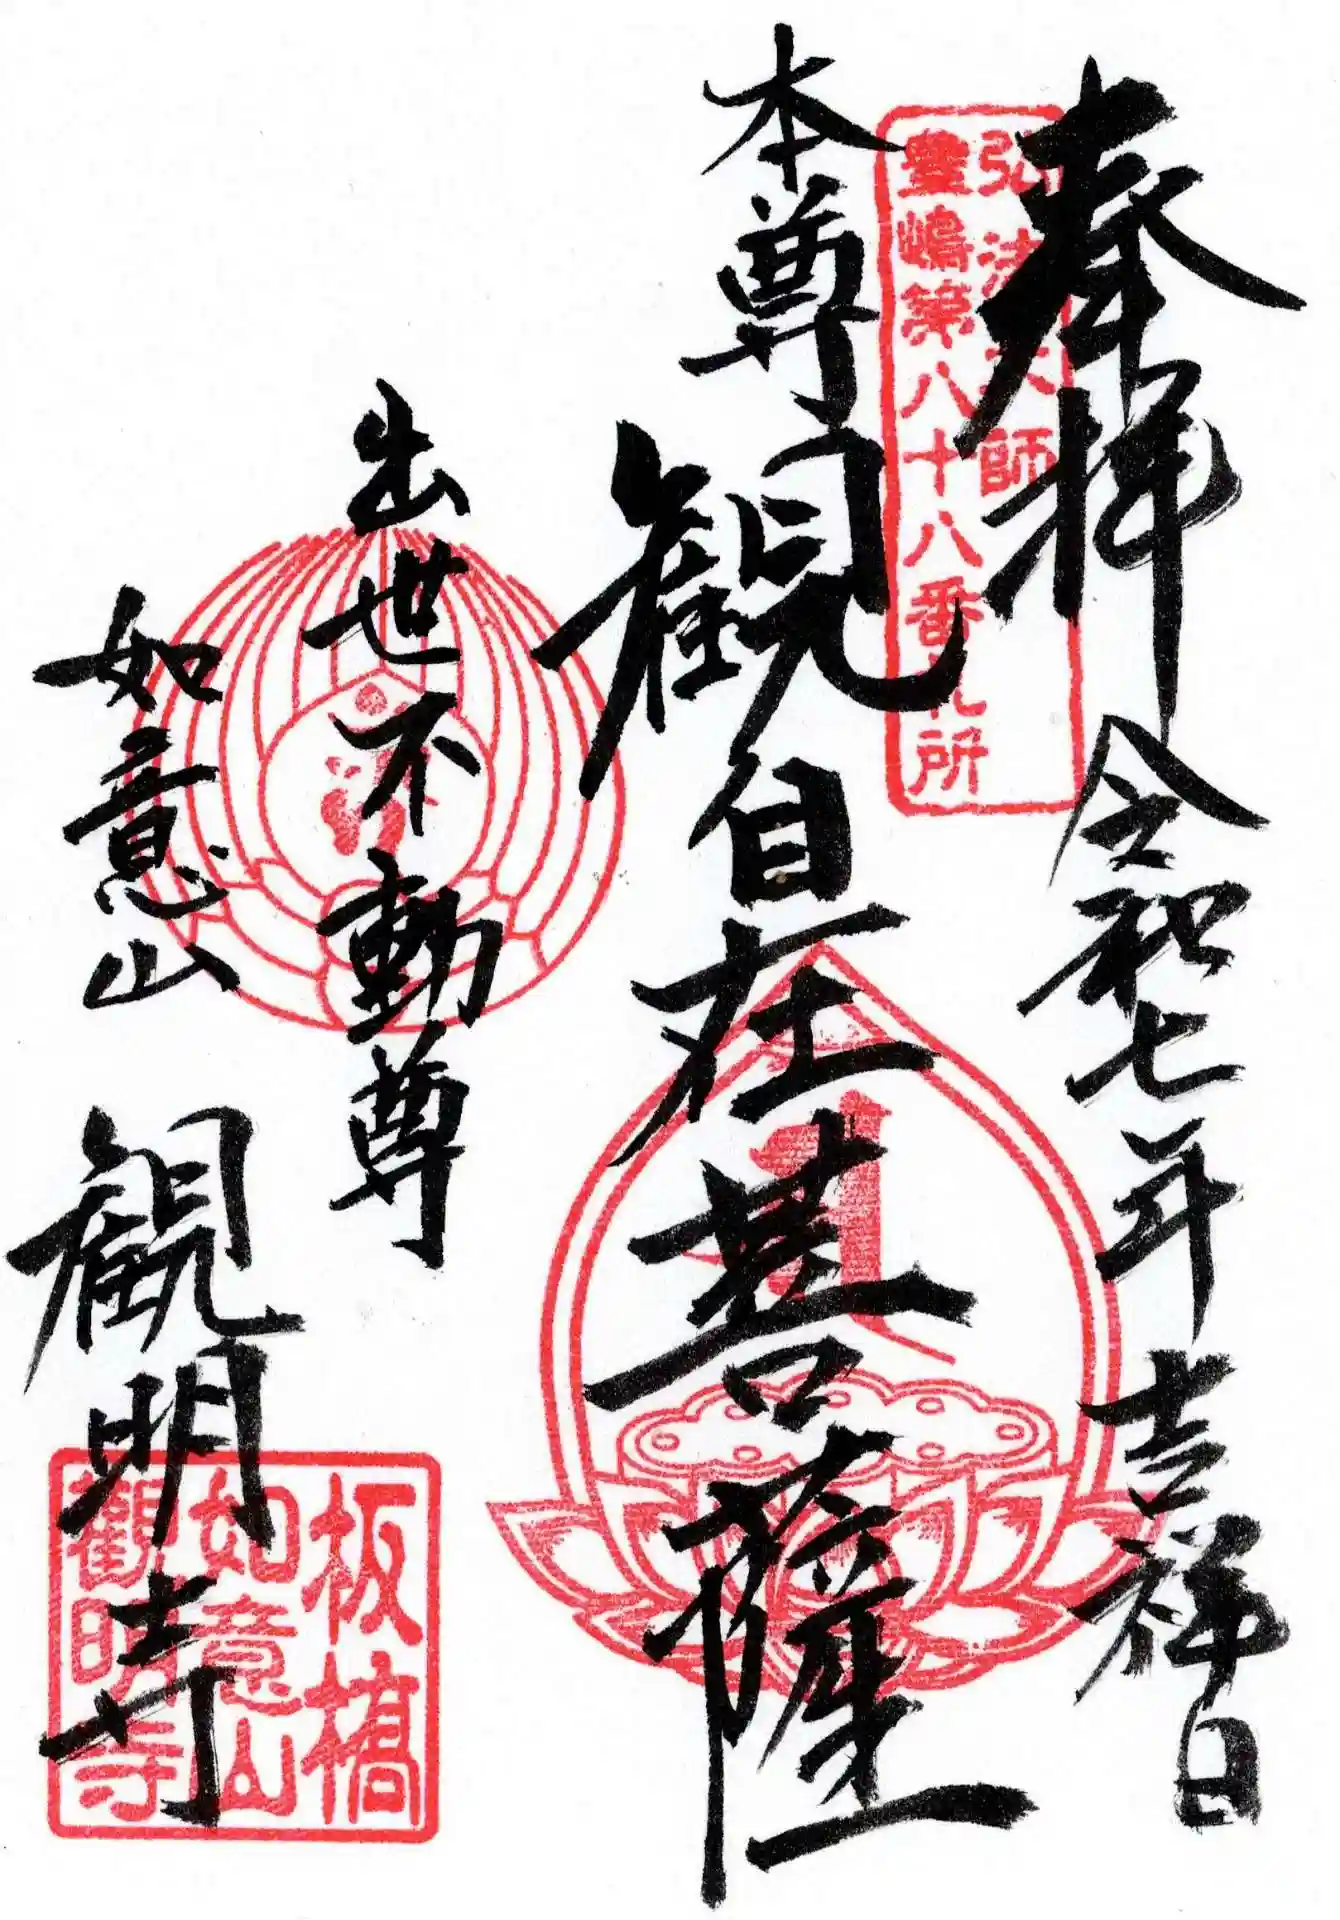 奉拝
令和七年吉祥日
弘法大師
豊嶋第八十八番札所
本尊
観自在菩薩
出世不動尊
如意山
観明寺
板橋
如意山
観明寺